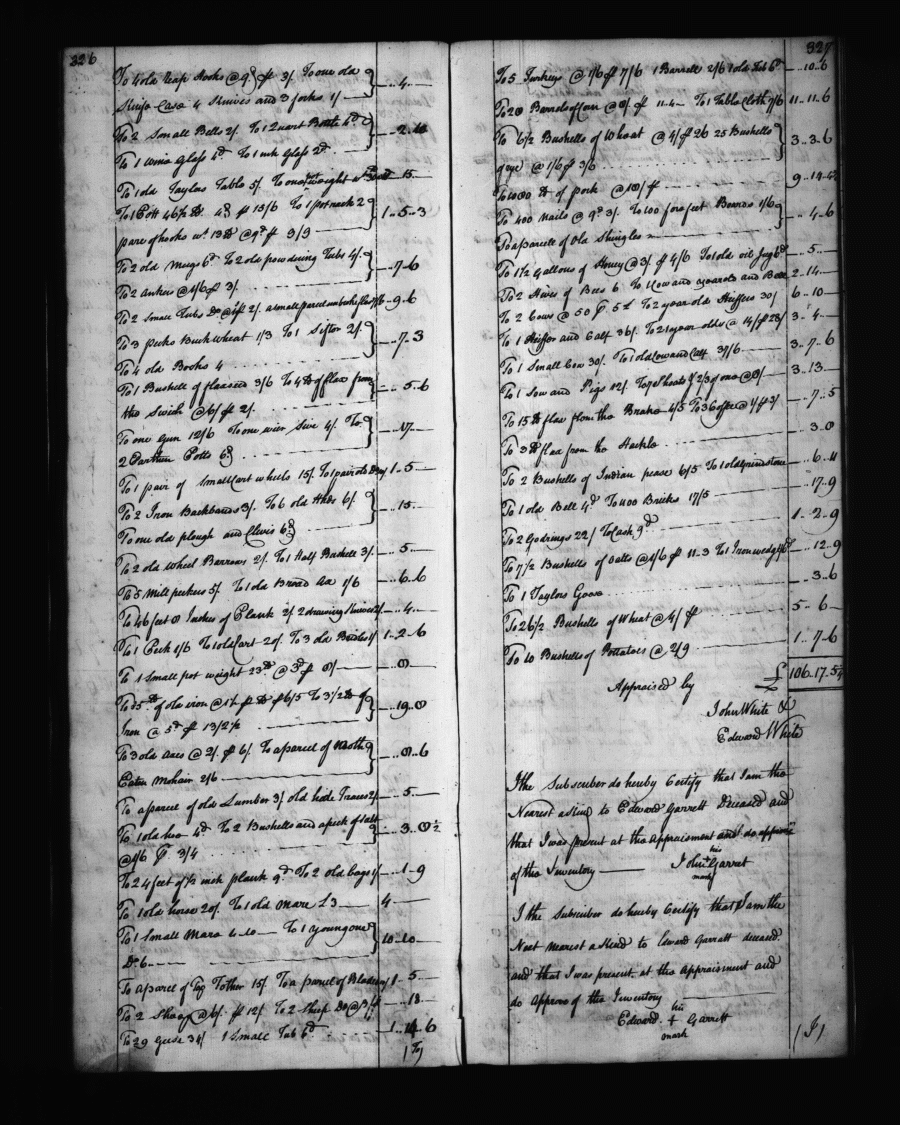 326
To 4 old reap hooks @ 9d pr 3/. To one old
Knife Case 4 Knives and 3 forks 1/ — ..4..—
To 2 Small Bells 2/. To 1 Quart Bottle 4d
To 1 wine Glass 4d. To 1 ink Glass 2d. ..2..10
To 1 old Taylors Table 5/. To one weight ..15..—
To 1 Pott 46½ lb. 4d pr 15/6 To 1 pot rack 2
pare of hooks wt. 13 lb @ 9d pr 9/9 — 1..5..3
To 2 old Meugs 6d. To 2 old powdering Tubs 4/.
To 2 ankers @ 1/6 pr 3/. ..7..6
To 2 Small Tubs Do @ 1/ pr 2/. a small parcel unbroke flax 7/6 ..9..6
To 3 pecks Buckwheat 1/3 To 1 Sifter 2/.
To 4 old Books 4 ..7..3
To 1 Bushell of flaxseed 3/6 To 4 lb of flax from
the Swich @ 6/ pr 2/. ..5..6
To one Gun 12/6 To one wier Sive 4/. To
2 Earthen Potts 6d ..17..—
To 1 pair of Small Cart wheels 15/. To 1 pair old 1..5..—
To 2 Iron Backbands 3/. To 6 old Hoes 6/.
To one old plough and Clevis 6d ..15..
To 2 old Wheel Barrows 2/. To 1 Half Bushell 3/. ..5..
To 5 Mill peckers 5/. To 1 old Broad Ax 1/6 ..6..6
To 46 feet 8 Inches of Plank 2/. 2 drawing Knives 2/. ..4..
To 1 Peck 1/6 To 1 old Cart 20/. To 3 old Bridles 1/ 1..2..6
To 1 Small pot weight 23 lb @ 3d pr 8/ ..8..
To 35 lb of old iron @ pr lb pr 6/5 To 31½ lb of
Iron @ 5d pr 13/2½ ..19..8
To 3 old axes @ 2/. pr 6/. To a parcel of Moth
Eaten Mohair 2/6 ..8..6
To a parcel of old Lumber 3/. old hide Traces 2/. ..5..
To 1 old hoe 4d. To 2 Bushells and a peck of salt
@ 1/6 pr 3/4 ..3..8½
To 24 feet of ½ inch plank 9d To 2 old bags 1/ ..1..9
To 1 old horse 20/. To 1 old Mare £3 — 4..—
To 1 Small Mare 4..10 — To 1 young one
Do. 6 10..10..—
To a parcel of Top Fother 15/. To a parcel of Blades 1..5..—
To 2 Shoog @ 6/. pr 12/. To 2 Sheep Do @ 3/ ..18..
To 29 Geese 34/ 1 Small Tub 6d 1..14..6
(To)
327
To 5 Turkeys @ 1/6 pr 7/6 1 Barrell 2/6 1 old Tub 6d ..10..6
To 28 Barrels of Corn @ 8/ pr 11..4.. To 1 Table Cloth 7/6 11..11..6
To 6½ Bushells of Wheat @ 4/ pr 26 25 Bushells
of rye @ 1/6 pr 3/6 3..3..6
To 1080 lb of pork @ 18/ pr 9..14..4¾
To 400 nails @ 9d 3/. To 100 fore feet Boards 1/6
To a parcell of Old Shingles ..4..6
To 1½ Gallons of Honey @ 3/. pr 4/6 To 1 old oil Jug 6d ..5..
To 2 Hives of Bees 6 To 1 Cow and yearold and Bell 2..14..
To 2 Cows @ 50 pr 5 £ To 2 year old Heiffers 30/ 6..10—
To 1 Heiffer and Calf 36/. To 2 1 year olds @ 14/ pr 28/ 3..4..
To 1 Small Cow 30/. To 1 old Cow and Calf 37/6 3..7..6
To 1 Sow and Pigs 12/. To 7 Shoats 3..13..
To 15 lb flax from the Brake 4/5 To 3 Coffee @ 1/ pr 3/ ..7..5
To 3 lb flax from the Hackle ..3..0
To 2 Bushells of Indian pease 6/5 To 1 old grinestone ..6..11
To 1 old Bell 4d To 1100 Bricks 17/5 ..17..9
To 2 Godrings 22/ To Cash 9d 1..2..9
To 7½ Bushells of Oatts @ 1/6 pr 11..3 To 1 Iron wedge ..12..9
To 1 Taylors Goose ..3..6
To 26½ Bushells of Wheat @ 4/ pr 5..6—
To 10 Bushells of Pottatoes @ 2/9 1..7..6
£ 106..17..5¼
Appraised by
John White &
Edward White
I the Subscriber do hereby Certify that I am the
Nearest a kind to Edward Garrett Deceased and
that I was present at the Appraisment and do approve
of the Inventory —— John + Garret
his
mark
I the Subscriber do hereby Certify that I am the
Next nearest a Kind to Edward Garrett deceased.
and that I was present at the Appraisment and
do Approve of the Inventory
his
Edward + Garrett
mark
(I)